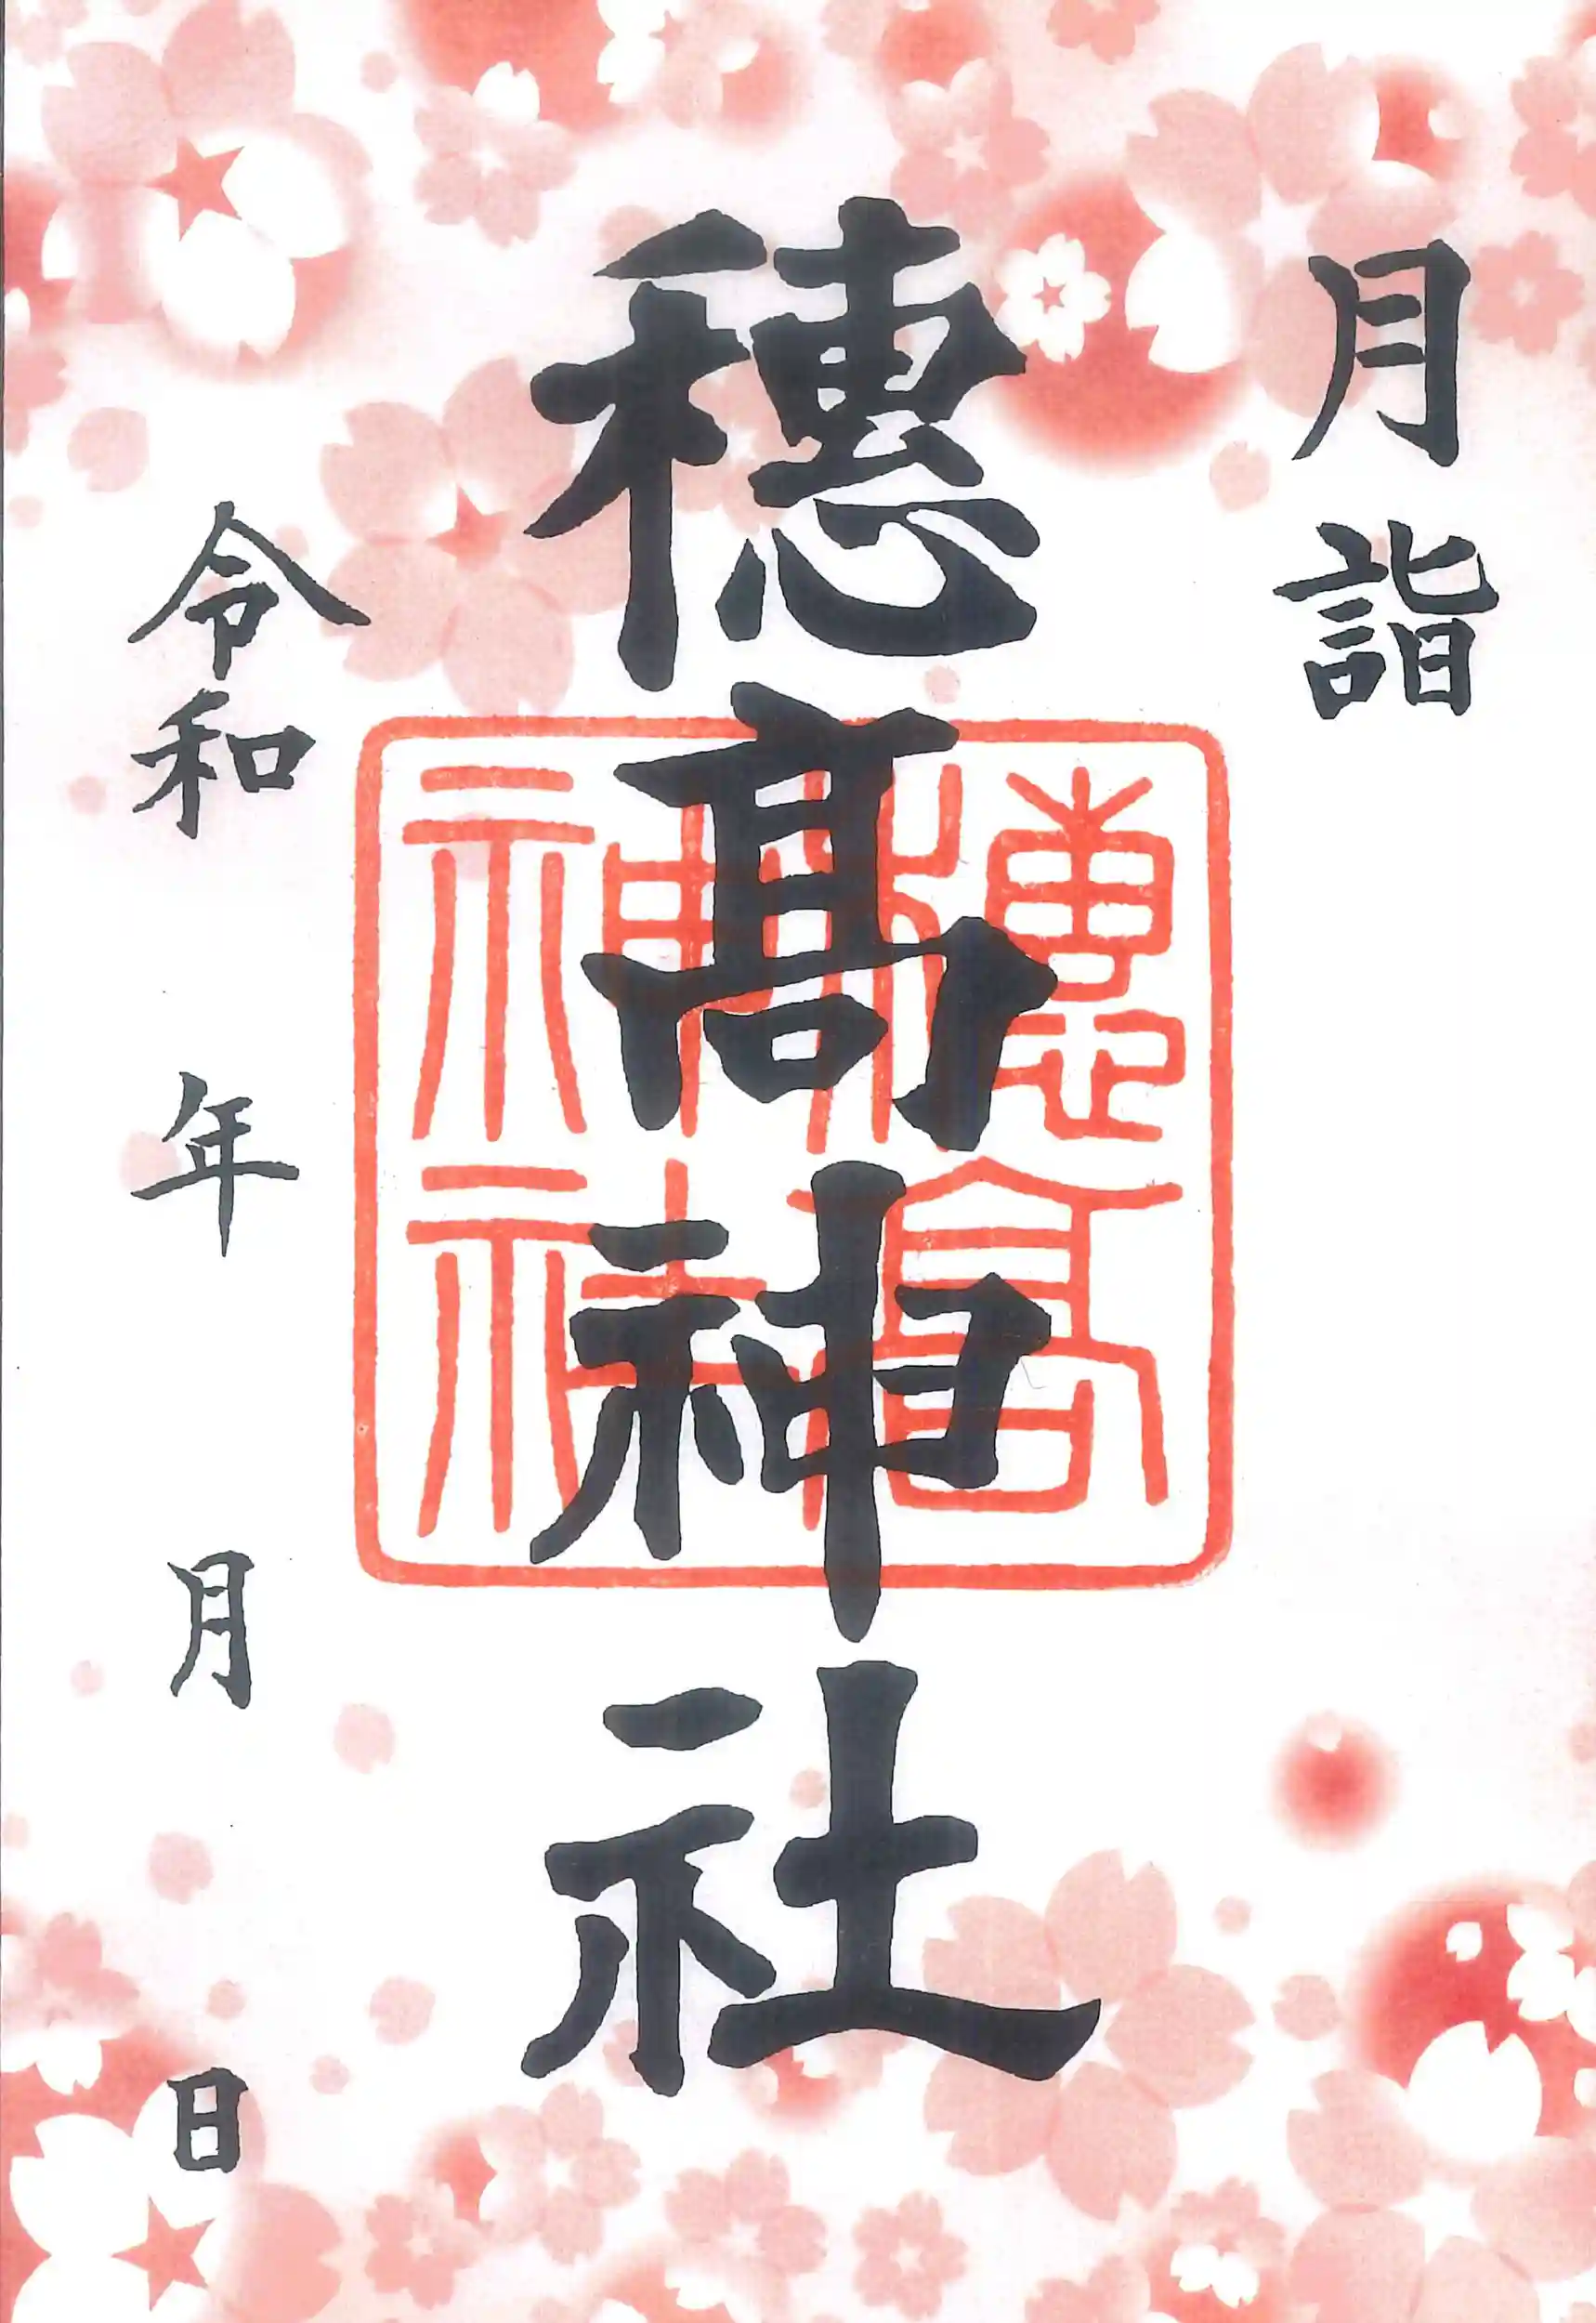 月詣
穗髙神社
穗高神社
令和 年 月 日